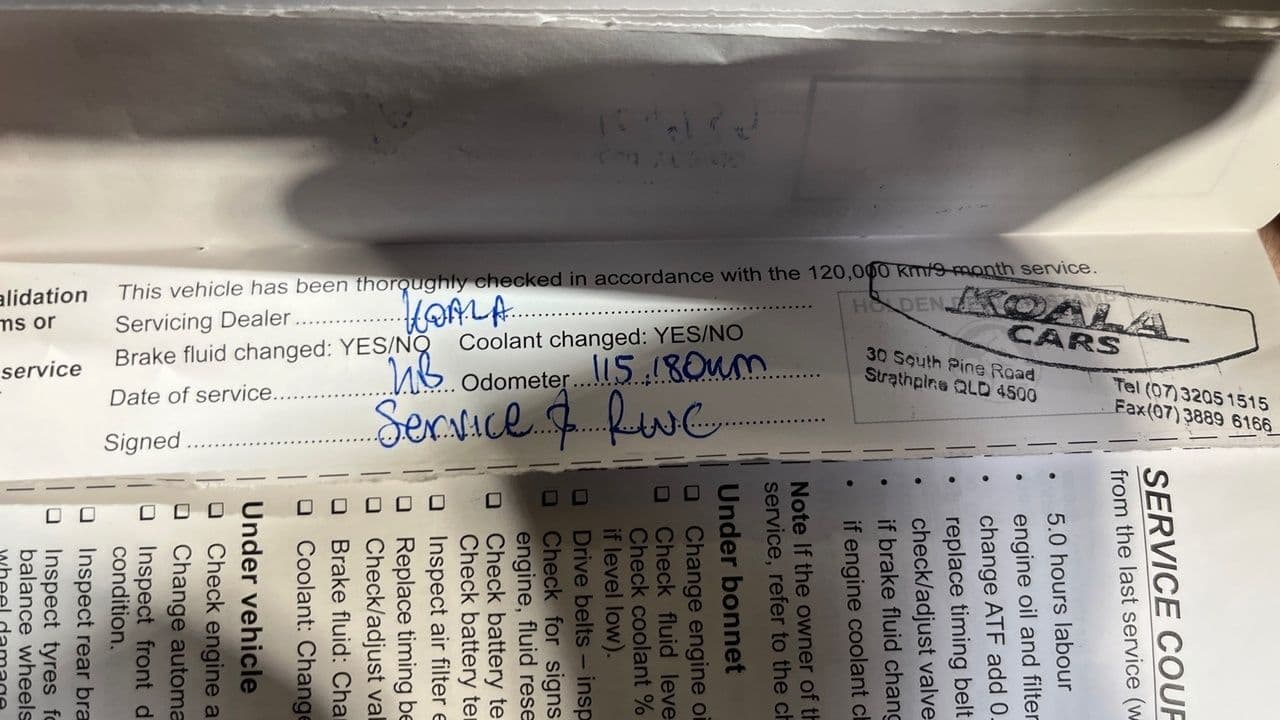 alidation
ms or
service
This vehicle has been thoroughly checked in accordance with the 120,000 km/9 month service.
Servicing Dealer KOALA
Brake fluid changed: YES/NO Coolant changed: YES/NO
Date of service Odometer 115,180km
Signed Service & RWC
KOALA
CARS
30 South Pine Road
Strathpine QLD 4500
Tel (07) 3205 1515
Fax (07) 3889 6166
SERVICE COUP
from the last service (w
• 5.0 hours labour
• engine oil and filter
• change ATF add 0.
• replace timing belt
• check/adjust valve
• if brake fluid chang
• if engine coolant ch
Note If the owner of th
service, refer to the ch
Under bonnet
Change engine oi
Check fluid leve
Check coolant %
if level low).
Drive belts – insp
Check for signs
engine, fluid rese
Check battery te
Check battery ter
Inspect air filter e
Replace timing be
Check/adjust val
Brake fluid: Chan
Coolant: Change
Under vehicle
Check engine a
Change automa
Inspect front d
condition.
Inspect rear bra
Inspect tyres fo
balance wheels
wheel damage